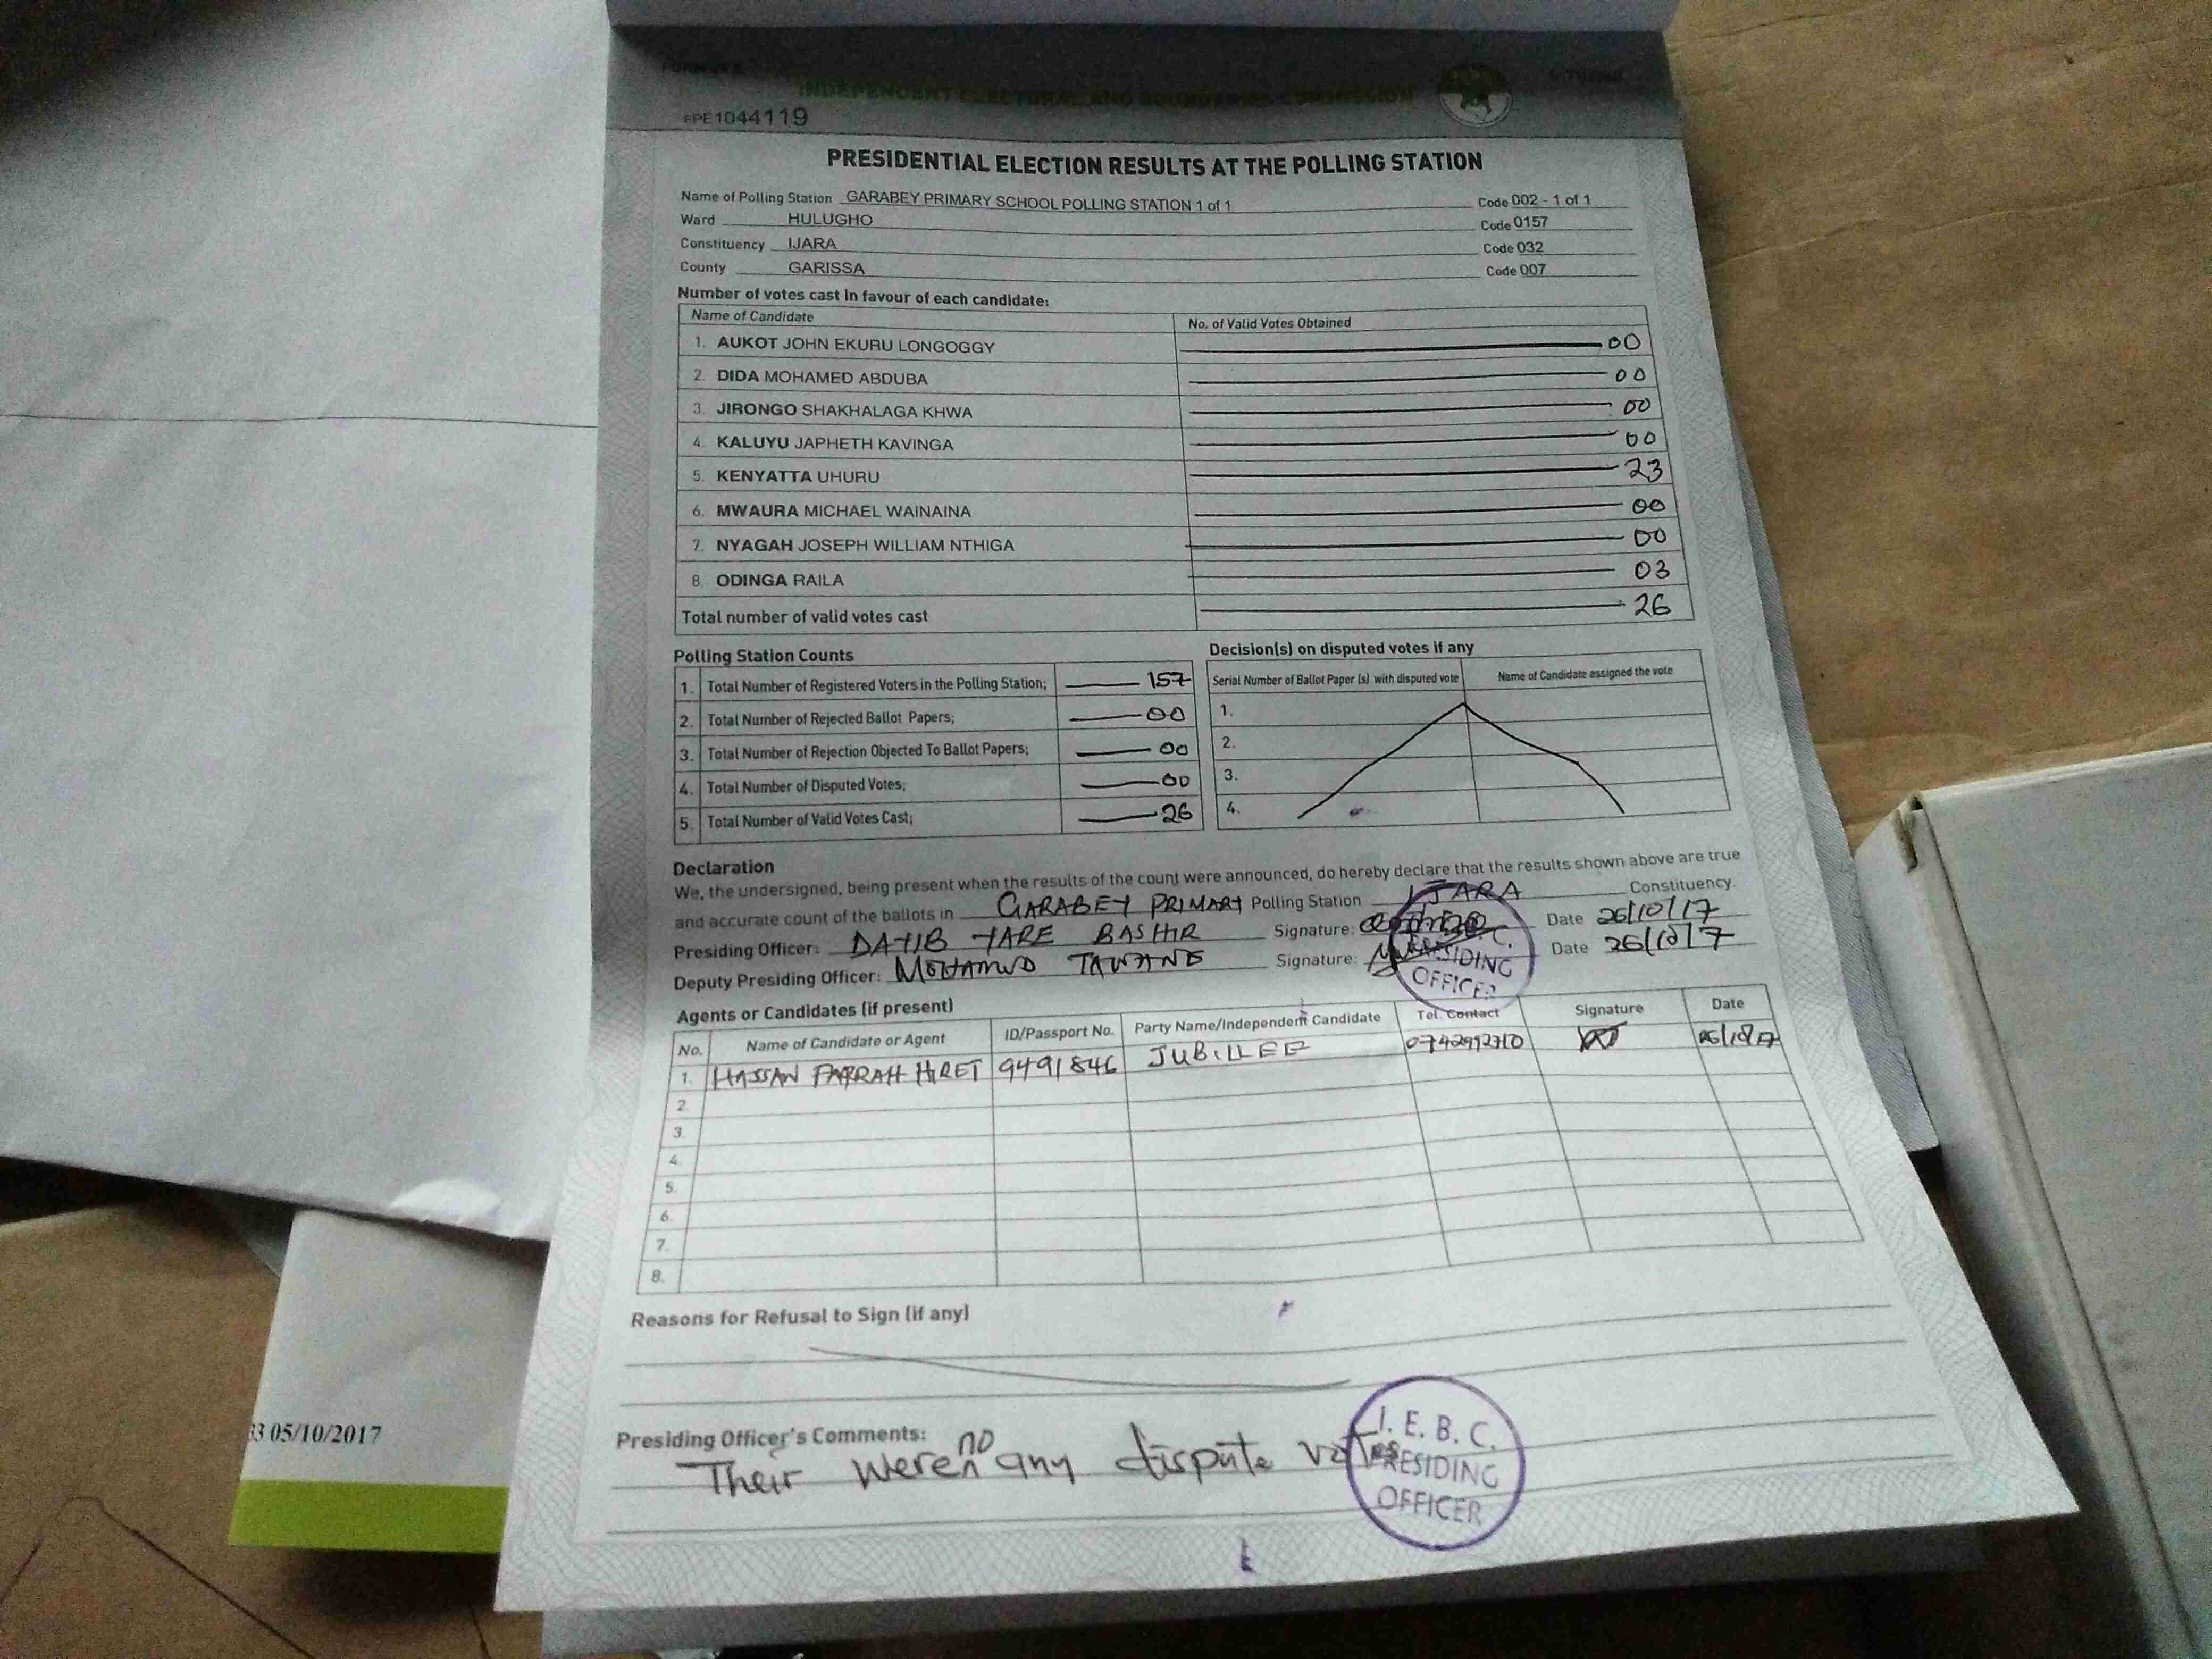 INDEPENDENT ELECTORAL AND BOUNDARIES COMMISSION
PE1044119
PRESIDENTIAL ELECTION RESULTS AT THE POLLING STATION
Name of Polling Station GARABEY PRIMARY SCHOOL POLLING STATION 1 of 1 Code 002 - 1 of 1
Ward HULUGHO Code 0157
Constituency IJARA Code 032
County GARISSA Code 007
Number of votes cast in favour of each candidate:
Name of Candidate No. of Valid Votes Obtained
1. AUKOT JOHN EKURU LONGOGGY 00
2. DIDA MOHAMED ABDUBA 00
3. JIRONGO SHAKHALAGA KHWA 00
4. KALUYU JAPHETH KAVINGA 00
5. KENYATTA UHURU 23
6. MWAURA MICHAEL WAINAINA 00
7. NYAGAH JOSEPH WILLIAM NTHIGA 00
8. ODINGA RAILA 03
Total number of valid votes cast 26
Polling Station Counts
1. Total Number of Registered Voters in the Polling Station; 157
2. Total Number of Rejected Ballot Papers; 00
3. Total Number of Rejection Objected To Ballot Papers; 00
4. Total Number of Disputed Votes; 00
5. Total Number of Valid Votes Cast; 26
Decision(s) on disputed votes if any
Serial Number of Ballot Paper (s) with disputed vote Name of Candidate assigned the vote
1.
2.
3.
4.
Declaration
We, the undersigned, being present when the results of the count were announced, do hereby declare that the results shown above are true
and accurate count of the ballots in GARABEY PRIMARY Polling Station IJARA Constituency.
Presiding Officer: DAYIB YARE BASHIR Signature: Date 26/10/17
Deputy Presiding Officer: MOHAMUD TAWANE Signature: Date 26/10/17
PRESIDING
OFFICER
Agents or Candidates (if present)
No. Name of Candidate or Agent ID/Passport No. Party Name/Independent Candidate Tel. Contact Signature Date
1. HASSAN FARRAH HIRET 9491846 JUBILLEE 0742992710 26/10/17
2.
3.
4.
5.
6.
7.
8.
Reasons for Refusal to Sign (if any)
Presiding Officer's Comments:
Their were no any dispute votes
I. E. B. C.
PRESIDING
OFFICER
33 05/10/2017